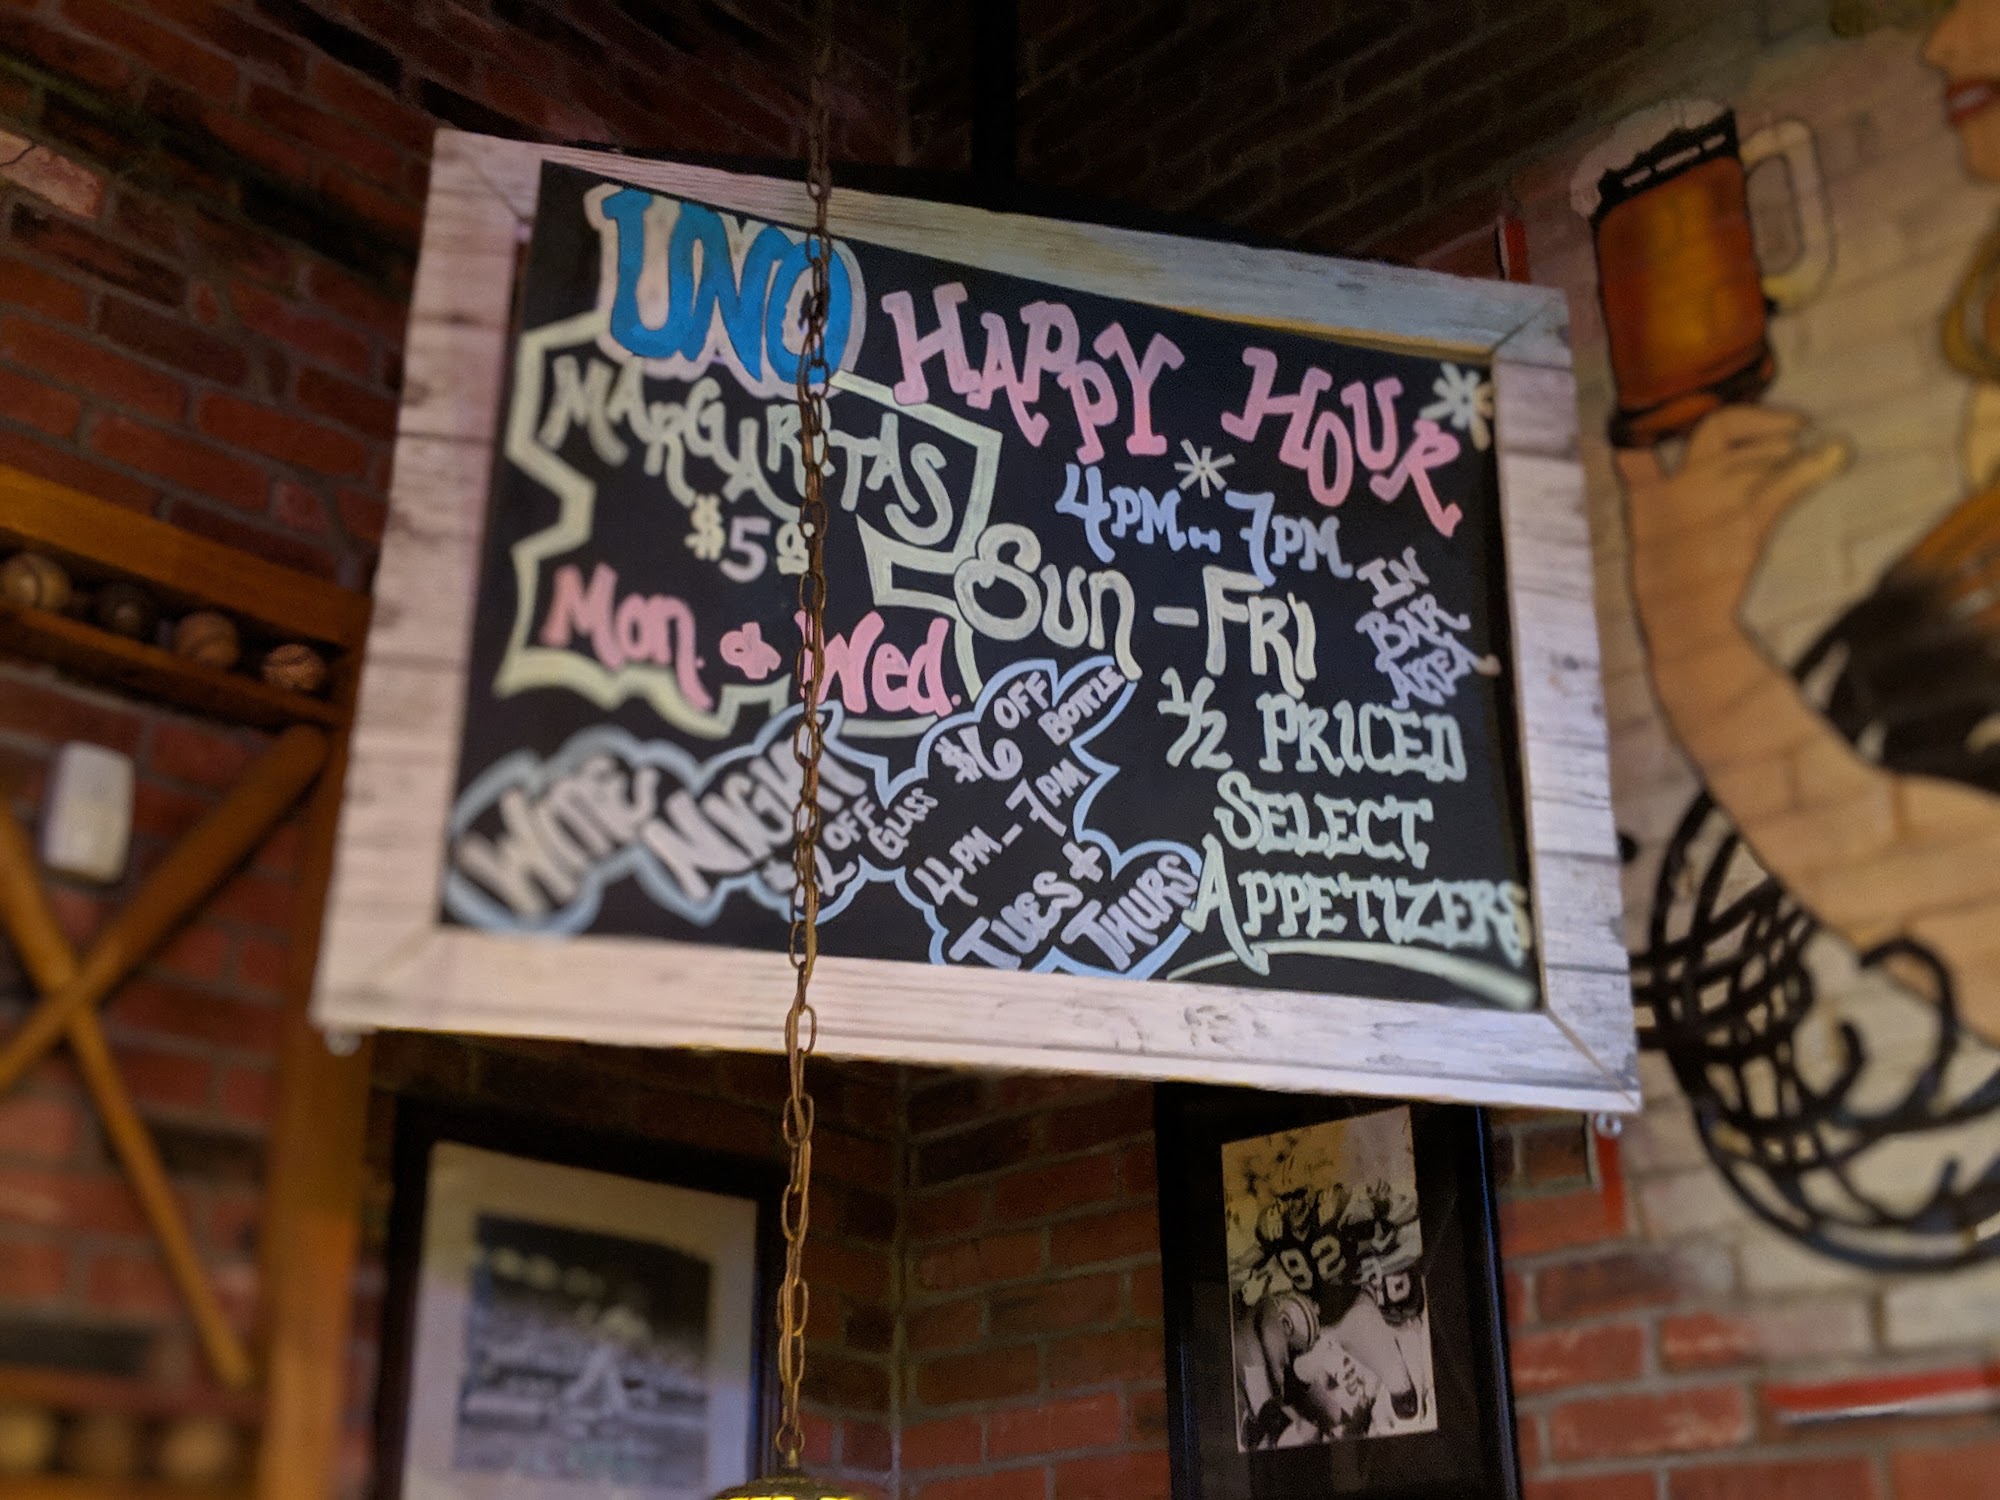 UNO HAPPY HOUR
MARGARITAS
$5
Mon. & Wed.
4PM - 7PM
SUN - FRI
IN
BAR
AREA
1/2 PRICED
SELECT
APPETIZERS
WINE NIGHT
$2 OFF
GLASS
$6 OFF
BOTTLE
4PM - 7PM
TUES +
THURS
92